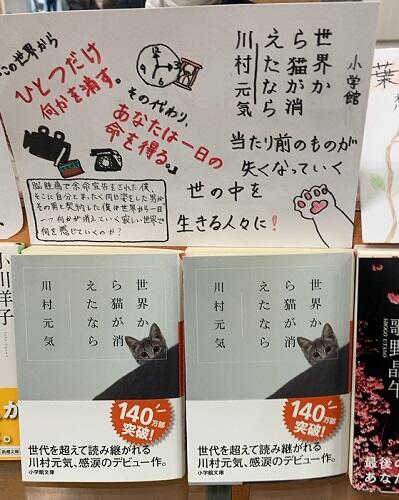 この世界から
ひとつだけ
何かを消す。
その代わり、
あなたは一日の
命を得る。』
世界か
ら猫が消
えたなら
川村元気
小学館
当たり前のものが
失くなっていく
世の中を
生きる人々に!
脳腫瘍で余命宣告をされた僕、
そこに自分とまったく同じ姿をした男が
その男と契約した僕は世界から一日
一つ何かが消えていく寂しい世界で
何を感じていくのか?
葉
小川洋子
新潮文庫
世界か
ら猫が消
えたなら
川村元気
140万部
突破!
世代を超えて読み継がれる
川村元気、感涙のデビュー作。
小学館文庫
世界か
ら猫が消
えたなら
川村元気
140万部
突破!
世代を超えて読み継がれる
川村元気、感涙のデビュー作。
小学館文庫
歌野晶午
SHOGO UTANO
最後の
あな